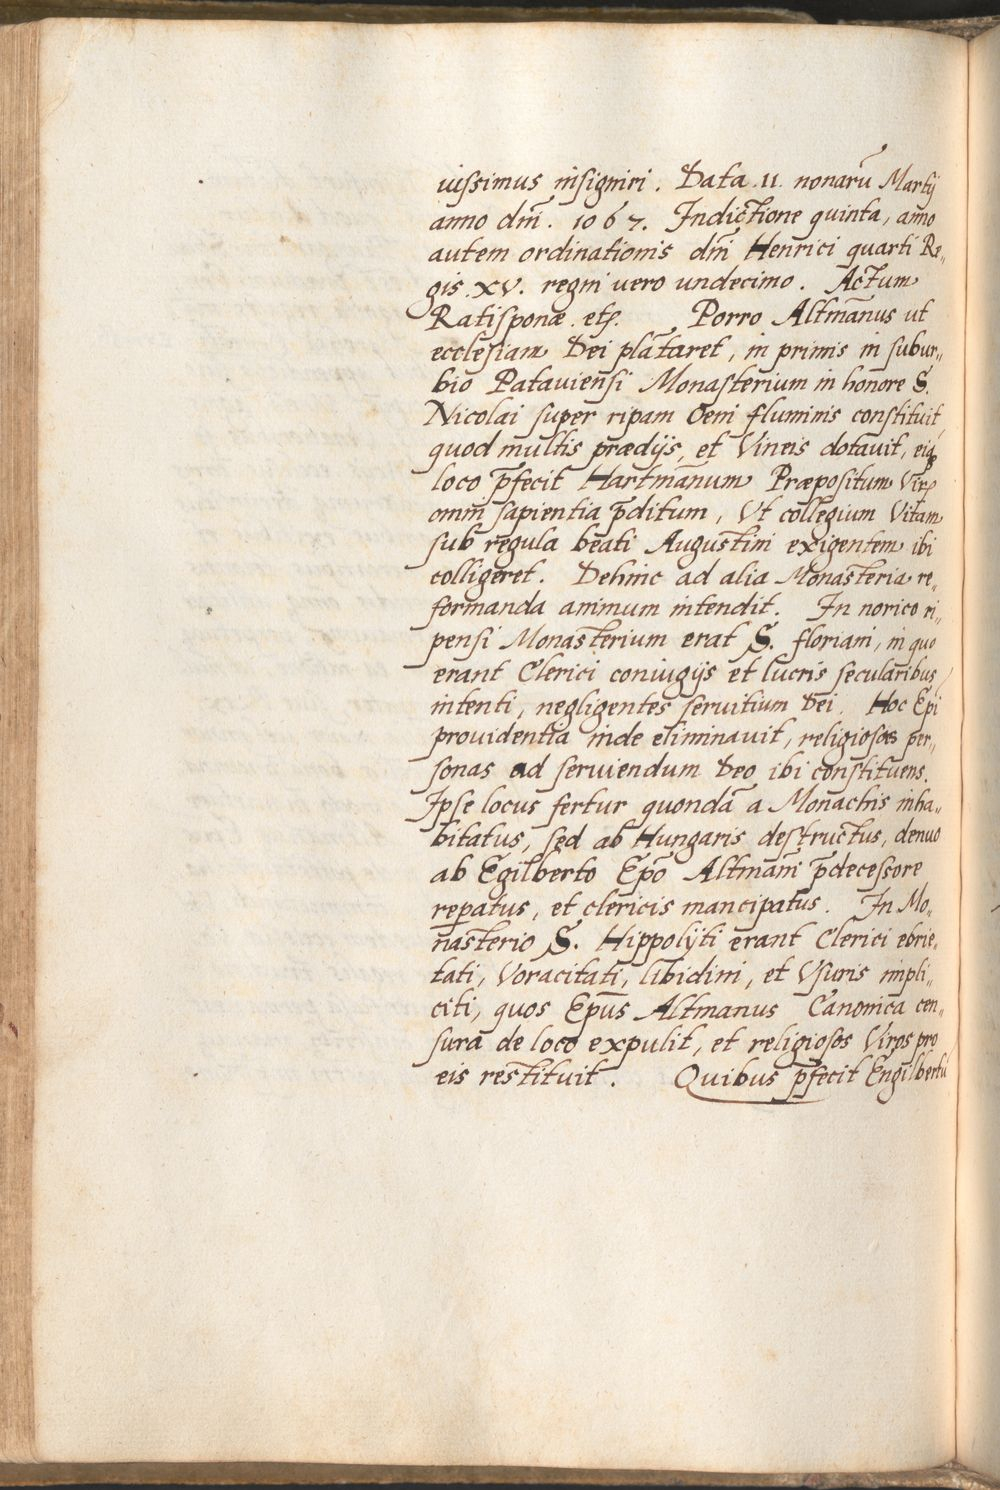 uissimus insigniri. Data .II. nonarū Martij
anno dm̄. 1067. Indictione quinta, anno
autem ordinationis dm̄i Henrici quarti Re„
gis .XV. regni uero undecimo. Actum
Ratisponæ. etc. Porro Altmānus ut
ecclesiam Dei plātaret, in primis in subur„
bio Patauiensi Monasterium in honore S.
Nicolai super ripam Oeni fluminis constituit,
quod multis prædijs, et Vineis dotauit, eiq;
loco p̄fecit Hartmānum Præpositum Virū
omni sapientia p̄ditum, Vt collegium Vitam
sub regula beati Augustini exigentem ibi
colligeret. Dehinc ad alia Monasteria re„
formanda animum intendit. In norico ri„
pensi Monasterium erat S. floriani, in quo
erant Clerici coniugijs et lucris secularibus
intenti, negligentes seruitium Dei. Hoc Epi
prouidentia inde eliminauit, religiosas per„
sonas ad seruiendum Deo ibi constituens.
Ipse locus fertur quondā a Monachis inha„
bitatus, sed ab Hungaris destructus, denuo
ab Egilberto Ep̄o Altmāni p̄decessore
reparatus, et clericis mancipatus. In Mo„
nasterio S. Hippolÿti erant Clerici ebrie„
tati, Voracitati, libidini, et Vsuris impli„
citi, quos Ep̄us Altmanus Canonica cen„
sura de loco expulit, et religiosos Viros pro
eis restituit. Quibus p̄fecit Engilbertū